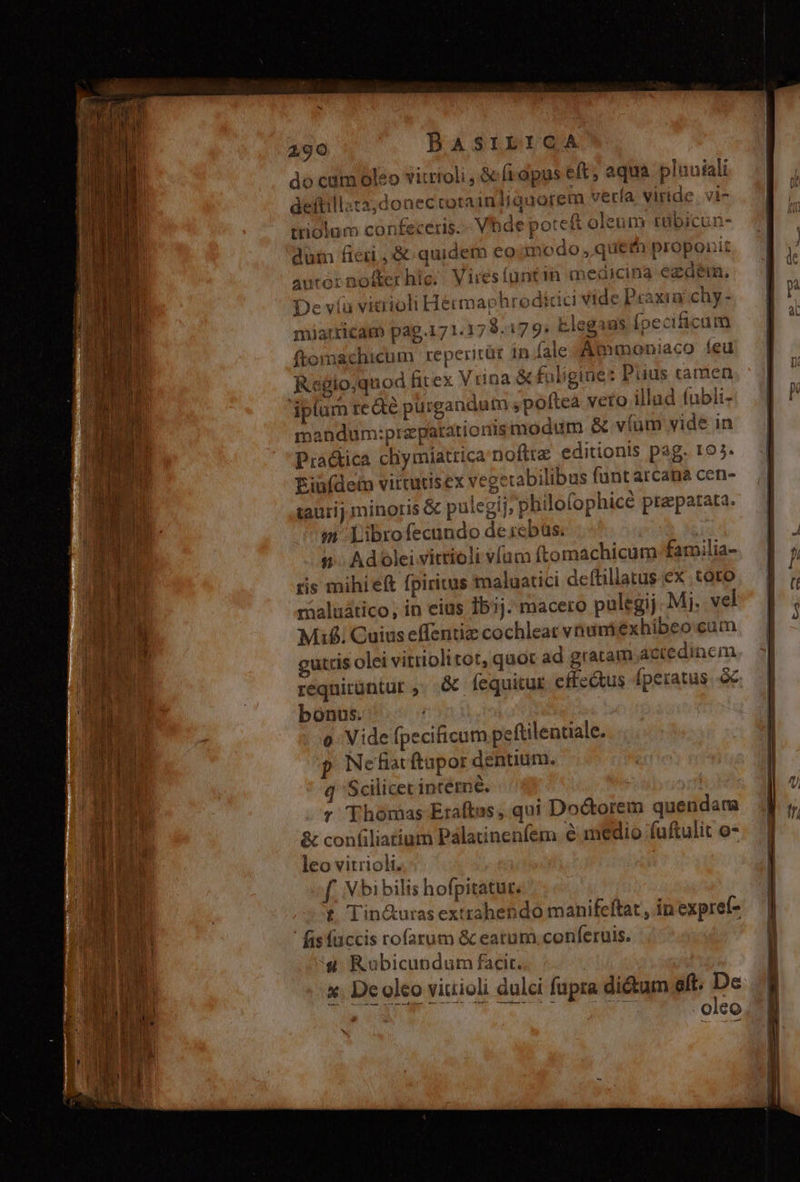 290 BASILICA
do cum oleo vitrioli, & si opus est, aqua pluuiali
destillata, donec totam in liquorem versa viride vi-
triolum confeceris. Vnde potest oleum rubicun-
dum fieri, & quidem eo modo, quem proponit
autor noster hic. Vires sunt in medicina eædem.
De vsu vitrioli Hermaphroditici vide Praxin chy-
miatricam pag. 171. 178. 179. Elegans specificum
stomachicum reperitur in sale Ammoniaco seu
Regio, quod fit ex Vrina & fuligine: Prius tamen
ipsum rectè purgandum, postea vero illud subli-
mandum: præparationis modum & vsum vide in
Practica chymiatrica nostræ editionis pag. 103.
Eiusdem virtutis ex vegetabilibus sunt arcana cen-
taurij minoris & pulegij, philosophicè præparata.
m Libro secundo de rebus.
n Ad olei vitrioli vsum stomachicum familia-
ris mihi est spiritus maluatici destillatus ex toto
maluatico, in eius ℔ij. macero pulegij Mj. vel
Miß. Cuius essentiæ cochlear vnum exhibeo cum
guttis olei vitrioli tot, quot ad gratam acredinem
requiruntur, & sequitur effectus speratus &
bonus.
o Vide specificum pestilentiale.
p Ne fiat stupor dentium.
q Scilicet internè.
r Thomas Erastus, qui Doctorem quendam
& consiliarium Palatinensem è medio sustulit o-
leo vitrioli.
ſ Vbi bilis hospitatur.
t Tincturas extrahendo manifestat, in expres-
sis succis rosarum & earum conseruis.
u Rubicundum facit.
x De oleo vitrioli dulci supra dictum est. De
oleo